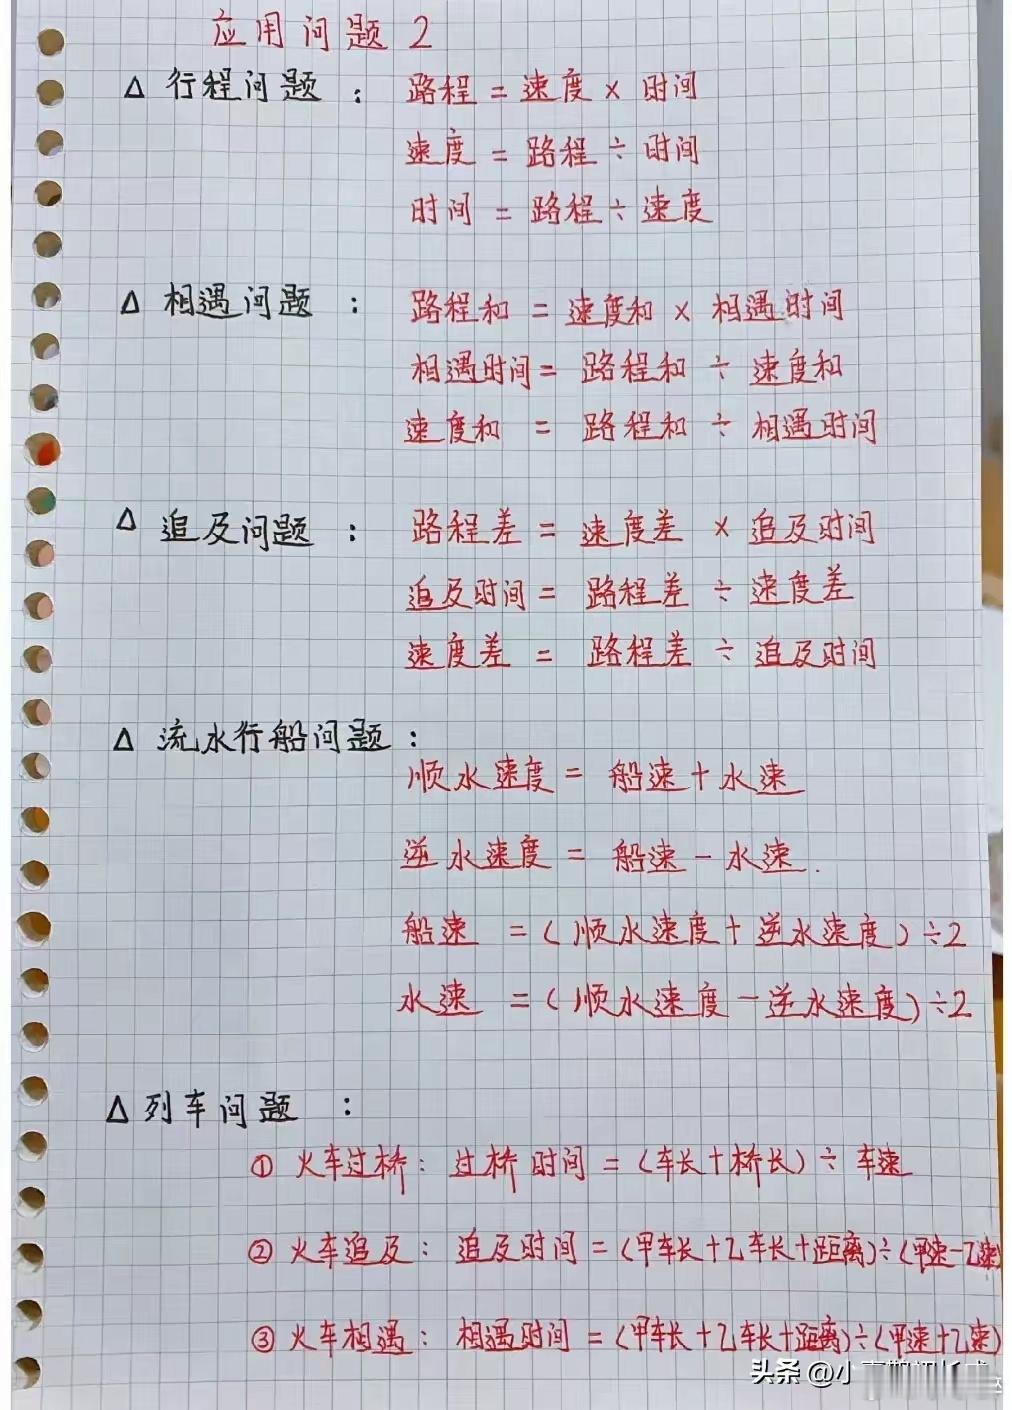 应用问题2
△ 行程问题 : 路程 = 速度 × 时间
速度 = 路程 ÷ 时间
时间 = 路程 ÷ 速度
△ 相遇问题 : 路程和 = 速度和 × 相遇时间
相遇时间 = 路程和 ÷ 速度和
速度和 = 路程和 ÷ 相遇时间
△ 追及问题 : 路程差 = 速度差 × 追及时间
追及时间 = 路程差 ÷ 速度差
速度差 = 路程差 ÷ 追及时间
△ 流水行船问题 :
顺水速度 = 船速 + 水速
逆水速度 = 船速 - 水速.
船速 = (顺水速度 + 逆水速度) ÷2
水速 = (顺水速度 - 逆水速度) ÷2
△ 列车问题 :
① 火车过桥: 过桥时间 = (车长+桥长) ÷ 车速
② 火车追及: 追及时间 = (甲车长+乙车长+距离)÷(甲速-乙速)
③ 火车相遇: 相遇时间 = (甲车长+乙车长+距离)÷(甲速+乙速)
头条 @小